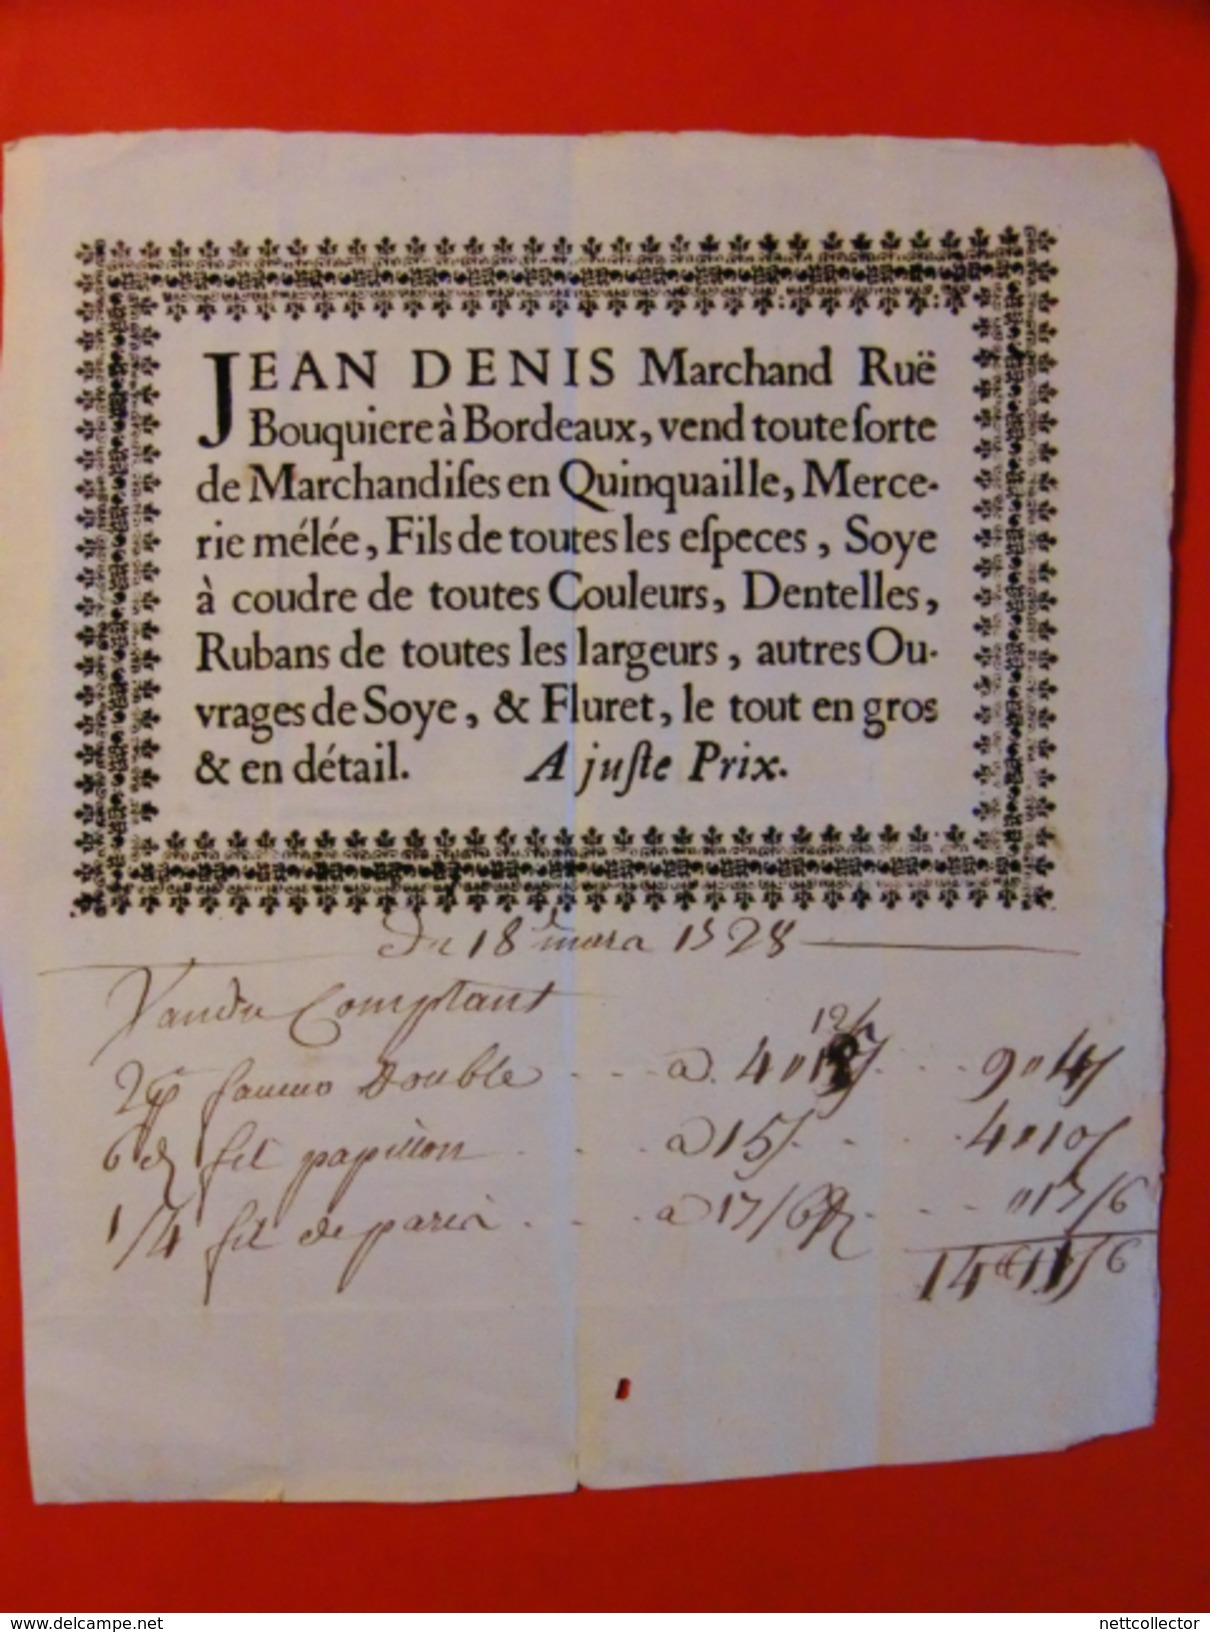 JEAN DENIS Marchand Ruë
Bouquiere à Bordeaux, vend toute ſorte
de Marchandiſes en Quinquaille, Merce-
rie mélée, Fils de toutes les eſpeces, Soye
à coudre de toutes Couleurs, Dentelles,
Rubans de toutes les largeurs, autres Ou-
vrages de Soye, & Fluret, le tout en gros
& en détail. A juſte Prix.
Du 18 mars 1728
Vandu Comptant
double a 4 " 12 s 9 " 4 s
6 fil papillon a 15 s 4 " 10 s
1/4 fil de paris a 17/6 " 17/6
14 " 11 s 6
delcampe.net
nettcollector